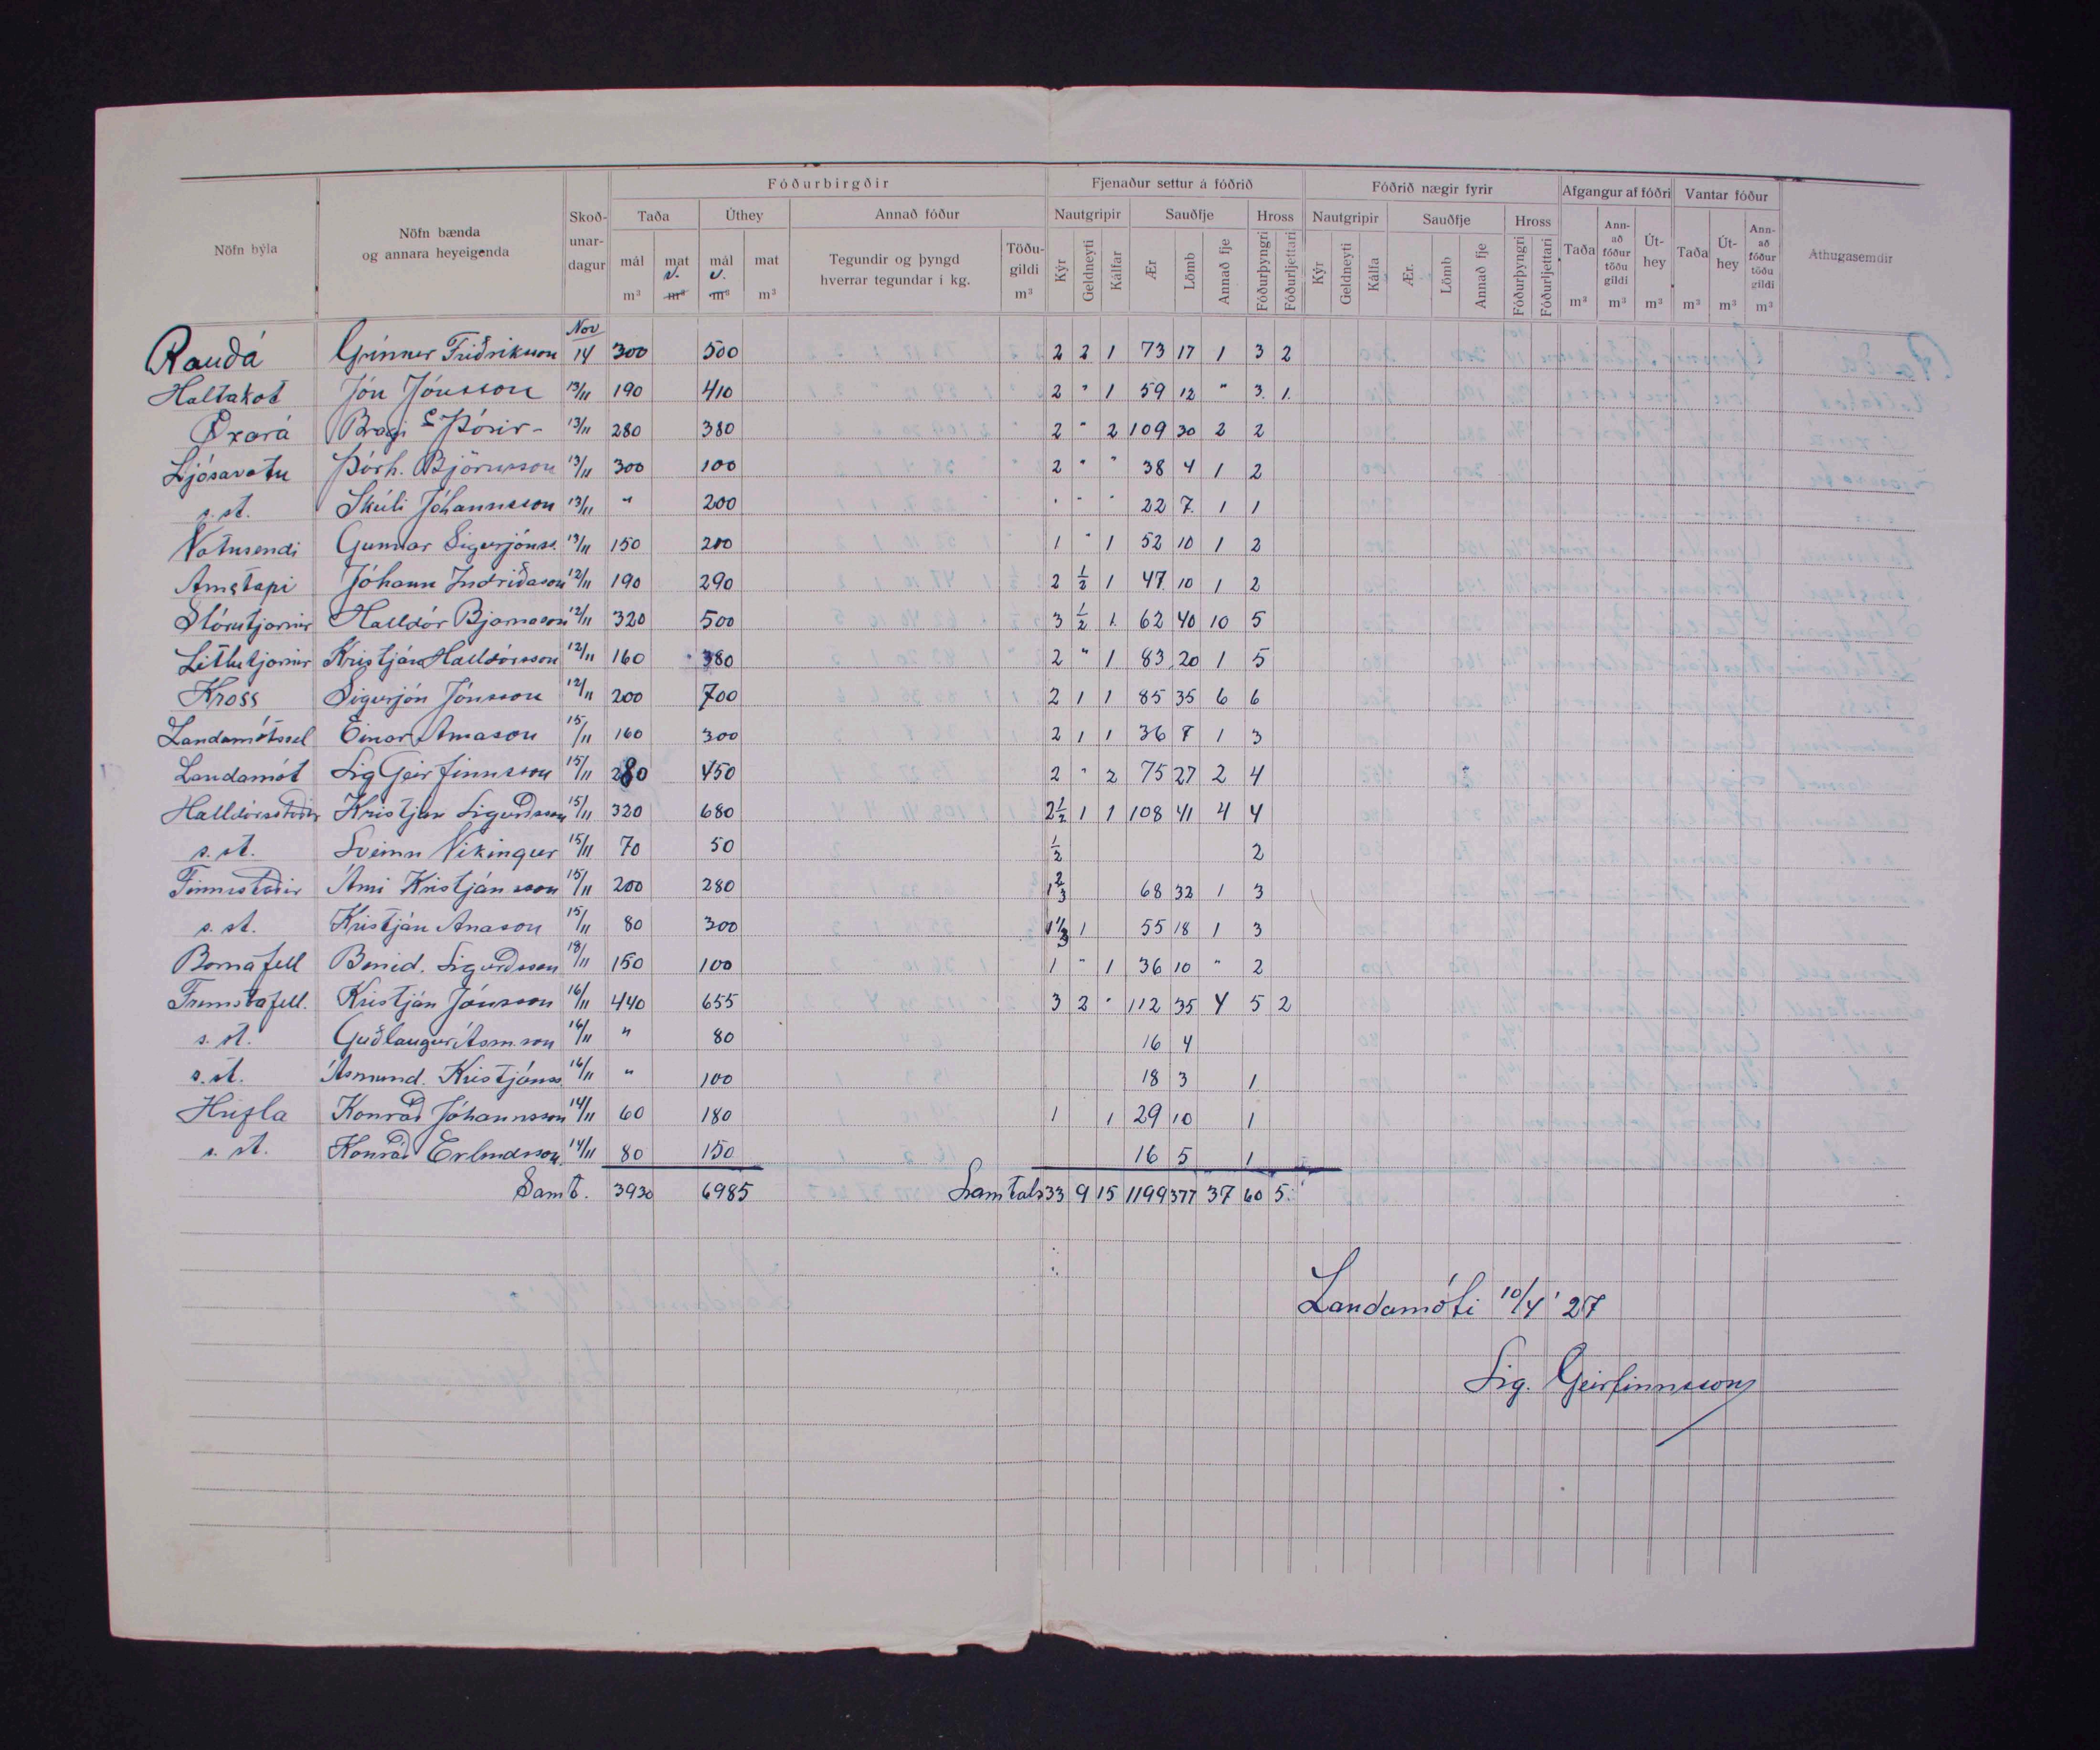 Fóðurbirgðir Fjenaður settur á fóðrið Fóðrið nægir fyrir Afgangur af fóðri Vantar fóður
Nöfn býla Nöfn bænda og annara heyeigenda Skoðunardagur Taða Úthey Annað fóður Nautgripir Sauðfje Hross Nautgripir Sauðfje Hross Taða Annað fóður töðu gildi Úthey Taða Úthey Annað fóður töðu gildi Athugasemdir
mál mat mál mat Tegundir og þyngd hverrar tegundar í kg. Töðugildi Kýr Geldneyti Kálfar Ær Lömb Annað fje Fóðurþyngri Fóðurljettari Kýr Geldneyti Kálfa Ær. Lömb Annað fje Fóðurþyngri Fóðurljettari
v. v.
m³ m³ m³ m³ m³ m³ m³ m³ m³ m³ m³
Nov
Rauðá Grímur Friðriksson 14 300 500 2 2 1 73 17 1 3 2
Holtakot Jón Jónsson 13/11 190 410 2 " 1 59 12 " 3. 1.
Öxará Bragi & Þórir - 13/11 280 380 2 " 2 109 30 2 2
Ljósavatn Þórh. Björnsson 13/11 300 100 2 " " 38 4 1 2
s. st. Skúli Jóhannsson 13/11 " 200 " " " 22 7. 1 1
Vatnsendi Gunnar Sigurjónss. 13/11 150 200 1 " 1 52 10 1 2
Arnstapi Jóhann Indriðason 12/11 190 290 2 ½ 1 47. 10 1 2
Stórutjarnir Halldór Bjarnason 12/11 320 500 3 ½ 1. 62 40 10 5
Litlutjarnir Kristján Halldórsson 12/11 160 380 2 " 1 83 20 1 5
Kross Sigurjón Jónsson 12/11 200 700 2 1 1 85 35 6 6
Landamótssel Einar Árnason 15/11 160 300 2 1 1 36 8 1 3
Landamót Sig Geirfinnsson 15/11 280 450 2 " 2 75 27 2 4
Halldórsstaðir Kristján Sigurðsson 15/11 320 680 2½ 1 1 108 41 4 4
s. st. Sveinn Víkingur 15/11 70 50 ½ 2
Finnsstaðir Árni Kristjánsson 15/11 200 280 1⅔ 68 32 1 3
s. st. Kristján Árnason 15/11 80 300 1⅓ 1 55 18 1 3
Barnafell Benid. Sigurðsson 18/11 150 100 1 " 1 36 10 " 2
Fremstafell. Kristján Jónsson 16/11 440 655 3 2 " 112 35 4 5 2
s. st. Guðlaugur Ásm.son 16/11 " 80 16 4
s. st. Ásmund. Kristjánss. 16/11 " 100 18 3 1
Hrifla Konráð Jóhannsson 14/11 60 180 1 1 29 10 1
s. st. Konráð Erlendsson 14/11 80 150 16 5 1
Samt. 3930 6985 Samtals 33 9 15 1199 377 37 60 5.
Landamóti 10/4 '27
Sig. Geirfinnsson